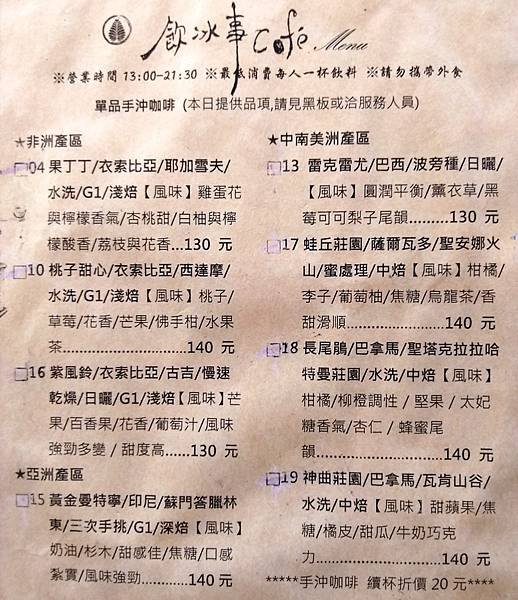 飲冰事Café Menu
※營業時間 13:00-21:30 ※最低消費每人一杯飲料 ※請勿攜帶外食
單品手沖咖啡 (本日提供品項,請見黑板或洽服務人員)
★非洲產區
□04 果丁丁/衣索比亞/耶加雪夫/
水洗/G1/淺焙【風味】雞蛋花
與檸檬香氣/杏桃甜/白柚與檸
檬酸香/荔枝與花香...130 元
□10 桃子甜心/衣索比亞/西達摩/
水洗/G1/淺焙【風味】桃子/
草莓/花香/芒果/佛手柑/水果
茶.............................140 元
□16 紫風鈴/衣索比亞/古吉/慢速
乾燥/日曬/G1/淺焙【風味】芒
果/百香果/花香/葡萄汁/風味
強勁多變 / 甜度高......130 元
★亞洲產區
□15 黃金曼特寧/印尼/蘇門答臘林
東/三次手挑/G1/深焙【風味】
奶油/杉木/甜感佳/焦糖/口感
紮實/風味強勁............140元
★中南美洲產區
□13 雷克雷尤/巴西/波旁種/日曬/
【風味】圓潤平衡/薰衣草/黑
莓可可梨子尾韻.........130 元
□17 蛙丘莊園/薩爾瓦多/聖安娜火
山/蜜處理/中焙【風味】柑橘/
李子/葡萄柚/焦糖/烏龍茶/香
甜滑順.......................140 元
□18 長尾鵑/巴拿馬/聖塔克拉拉哈
特曼莊園/水洗/中焙【風味】
柑橘/柳橙調性 / 堅果 / 太妃
糖香氣/杏仁 / 蜂蜜尾
韻.............................140 元
□19 神曲莊園/巴拿馬/瓦肯山谷/
水洗/中焙【風味】甜蘋果/焦
糖/橘皮/甜瓜/牛奶巧克
力.............................140 元
*****手沖咖啡 續杯折價 20 元****